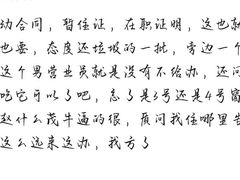 动合同，暂住证，在职证明，这也就
也要，态度还垃圾的一批，旁边一个
这个男营业员就是没有不给办，还问
吃它可以了吧，忘了是3号还是4号窗
赵什么茂牛逼的很，质问我住哪里告
这么远来这办，我方了